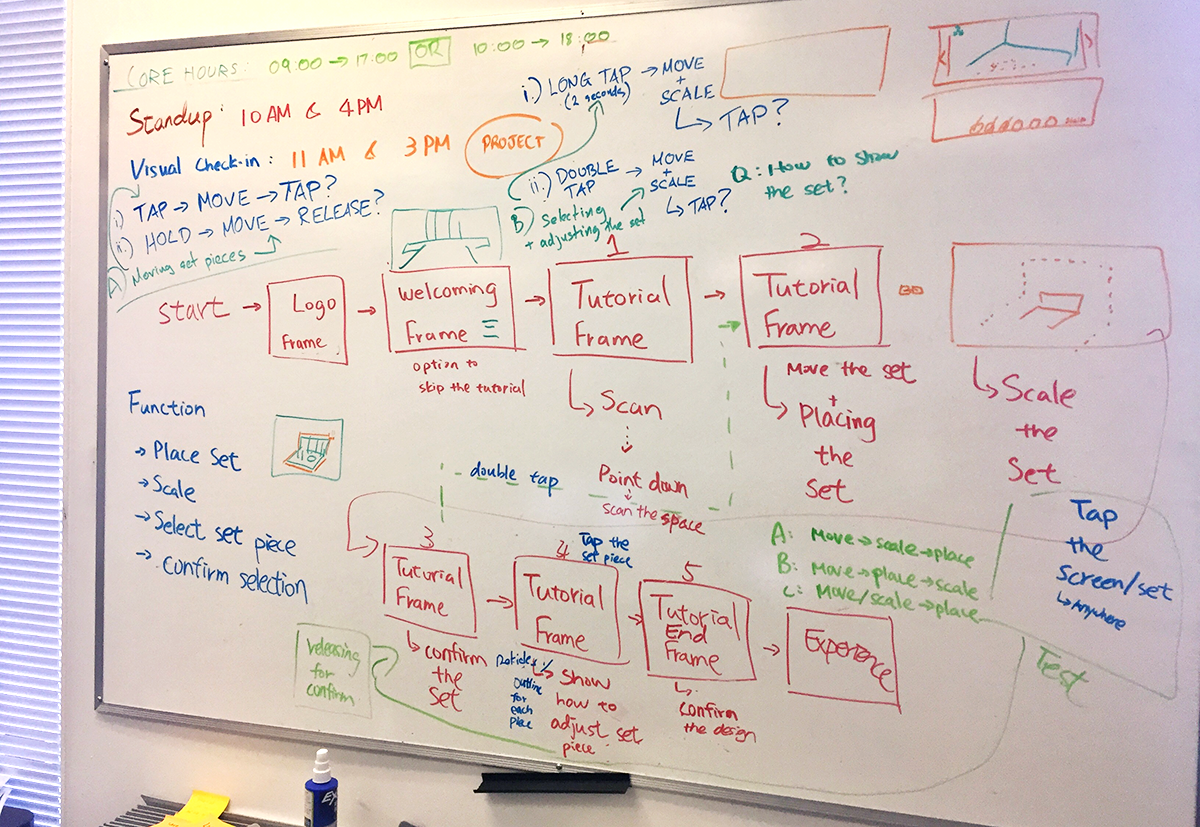 CORE HOURS: 09:00 → 17:00 OR 10:00 → 18:00
Standup: 10 AM & 4 PM
Visual Check-in: 11 AM & 3 PM
PROJECT
i.) TAP → MOVE → TAP?
ii.) HOLD → MOVE → RELEASE?
A) Moving set pieces
i.) LONG TAP → MOVE
(2 seconds)
+
SCALE
↳ TAP?
ii.) DOUBLE → MOVE
TAP
+
SCALE
↳ TAP?
B) Selecting
+ adjusting the set
Q: How to show
the set?
Start →
Logo
Frame
→
Welcoming
Frame
option to
skip the tutorial
→
1
Tutorial
Frame
↳ Scan
Point down
scan the space
→
2
Tutorial
Frame
Move the set
+
↳ Placing
the
set
↳ Scale
the
Set
Function
→ Place Set
→ Scale
→ Select set piece
→ Confirm selection
double tap
3
Tutorial
Frame
↳ confirm
the
set
→
4
Tap the
set piece
Tutorial
Frame
↳ Show
how to
adjust set
piece
outline
for
each
→
5
Tutorial
End
Frame
↳ Confirm
the design
→
Experience
releasing
for
confirm
A: Move → scale → place
B: Move → place → scale
C: Move/scale → place
Tap
the
screen/set
↳ Anywhere
Test